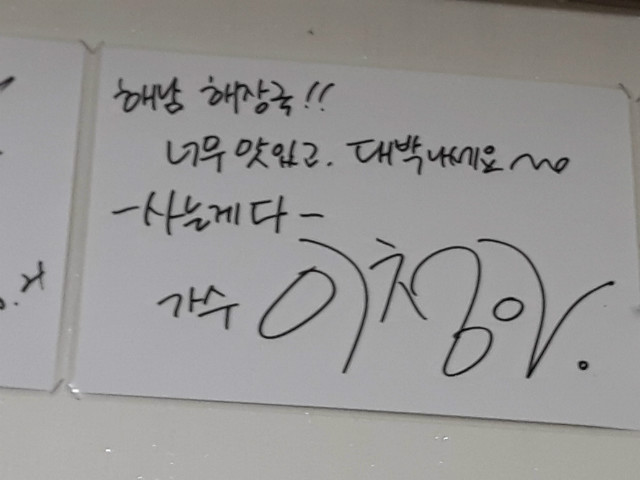 해남 해장국!!
너무 맛있고. 대박나세요~
-사는게 다-
가수 이청아.